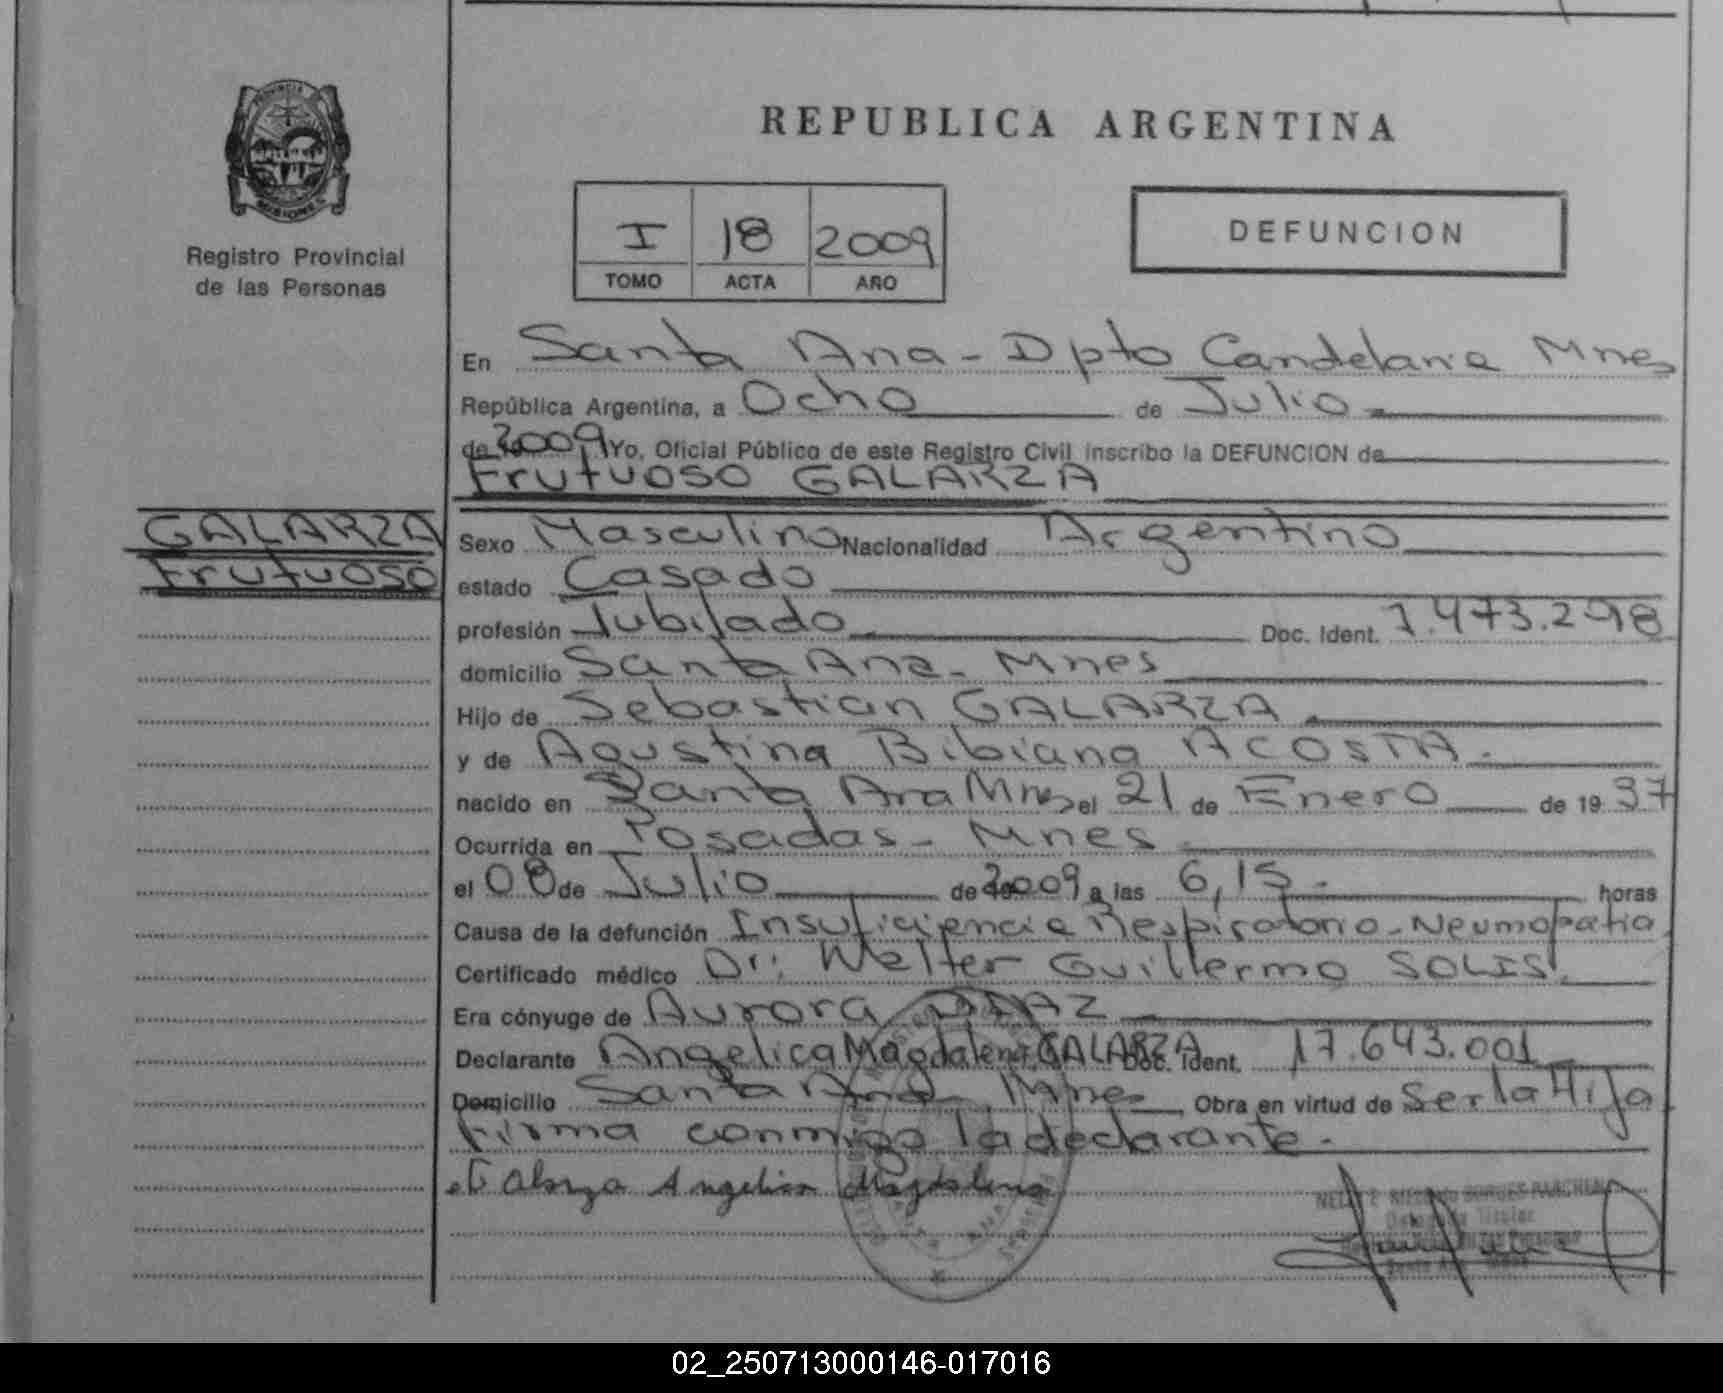 PROVINCIA
MISIONES
Registro Provincial
de las Personas
REPUBLICA ARGENTINA
I 18 2009
TOMO ACTA AÑO
DEFUNCION
En Santa Ana - Dpto Candelaria Mnes
República Argentina, a Ocho de Julio
de 2009 Yo, Oficial Público de este Registro Civil inscribo la DEFUNCION de
Frutuoso GALARZA
GALARZA
Frutuoso
Sexo Masculino Nacionalidad Argentino
estado Casado
profesión Jubilado Doc. Ident. 7.473.298
domicilio Santa Ana - Mnes
Hijo de Sebastian GALARZA
y de Agustina Bibiana ACOSTA.
nacido en Santa Ana Mnes el 21 de Enero de 19 37
Ocurrida en Posadas - Mnes
el 08 de Julio de 2009 a las 6,15. horas
Causa de la defunción Insuficiencia Respiratoria - Neumopatia
Certificado médico Dr: Walter Guillermo SOLIS.
Era cónyuge de Aurora DIAZ
Declarante Angelica Magdalena GALARZA Doc. Ident. 17.643.001
Domicilio Santa Ana Mnes Obra en virtud de Ser la Hija
Firma conmigo la declarante.
Galarza Angelica Magdalena
Titular
02_250713000146-017016